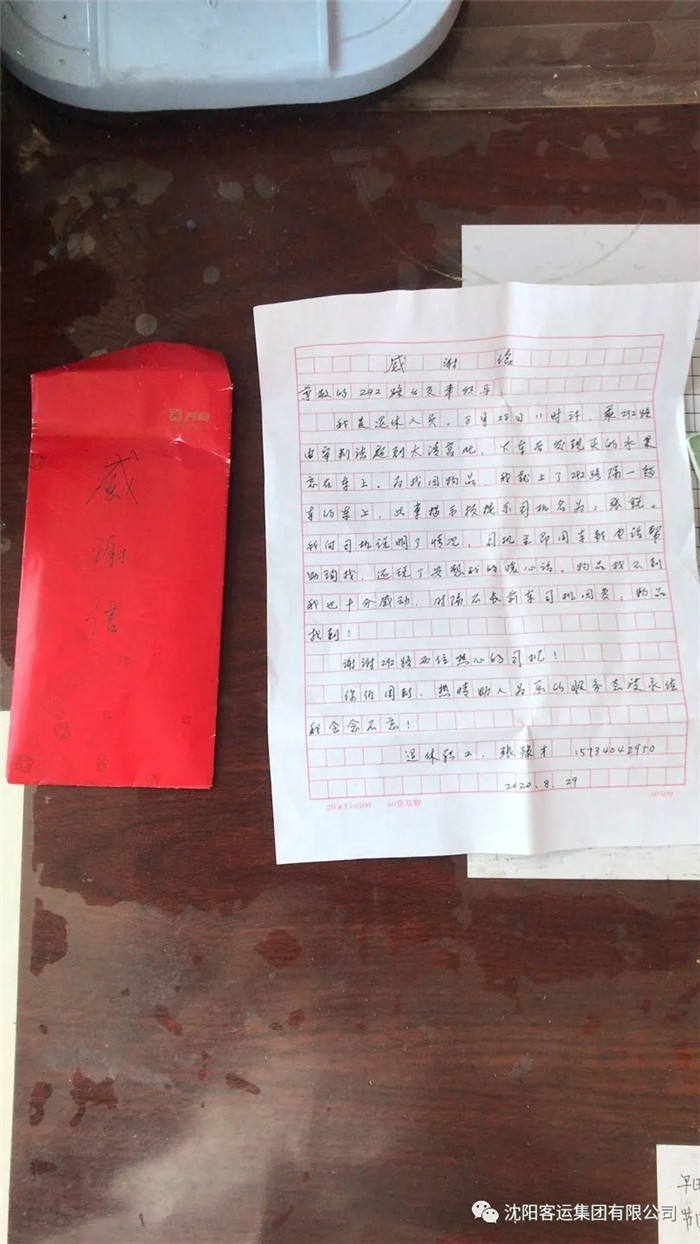 万科
感
谢
信
感谢信
尊敬的292路公交车领导
我是退休人员，8月28日11时许，乘292路
由审判法庭到太清宫北，下车后发现买的水果
忘在车上。为找回物品，我就上了292路隔一趟
车的车上，此车提示板提示司机名为：张锐。
我向司机说明了情况，司机立即用车载电话帮
助询找，还说了安慰我的暖心话。物品找不到
我也十分感动，时隔不长前车司机回复，物品
找到！
谢谢292路两位热心的司机！
你们周到、热情助人为乐的服务态度永值
我念念不忘！
退休职工：张 才 15734042950
2020.8.29
沈阳客运集团有限公司